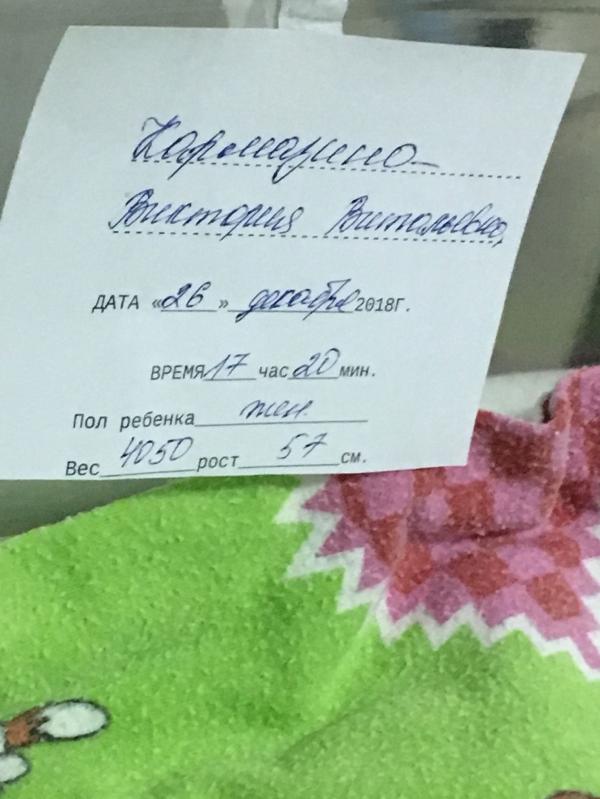 Кармазина
Виктория Витальевна
ДАТА «26» декабря 2018Г.
ВРЕМЯ 17 час 20 мин.
Пол ребенка жен.
Вес 4050 рост 57 см.